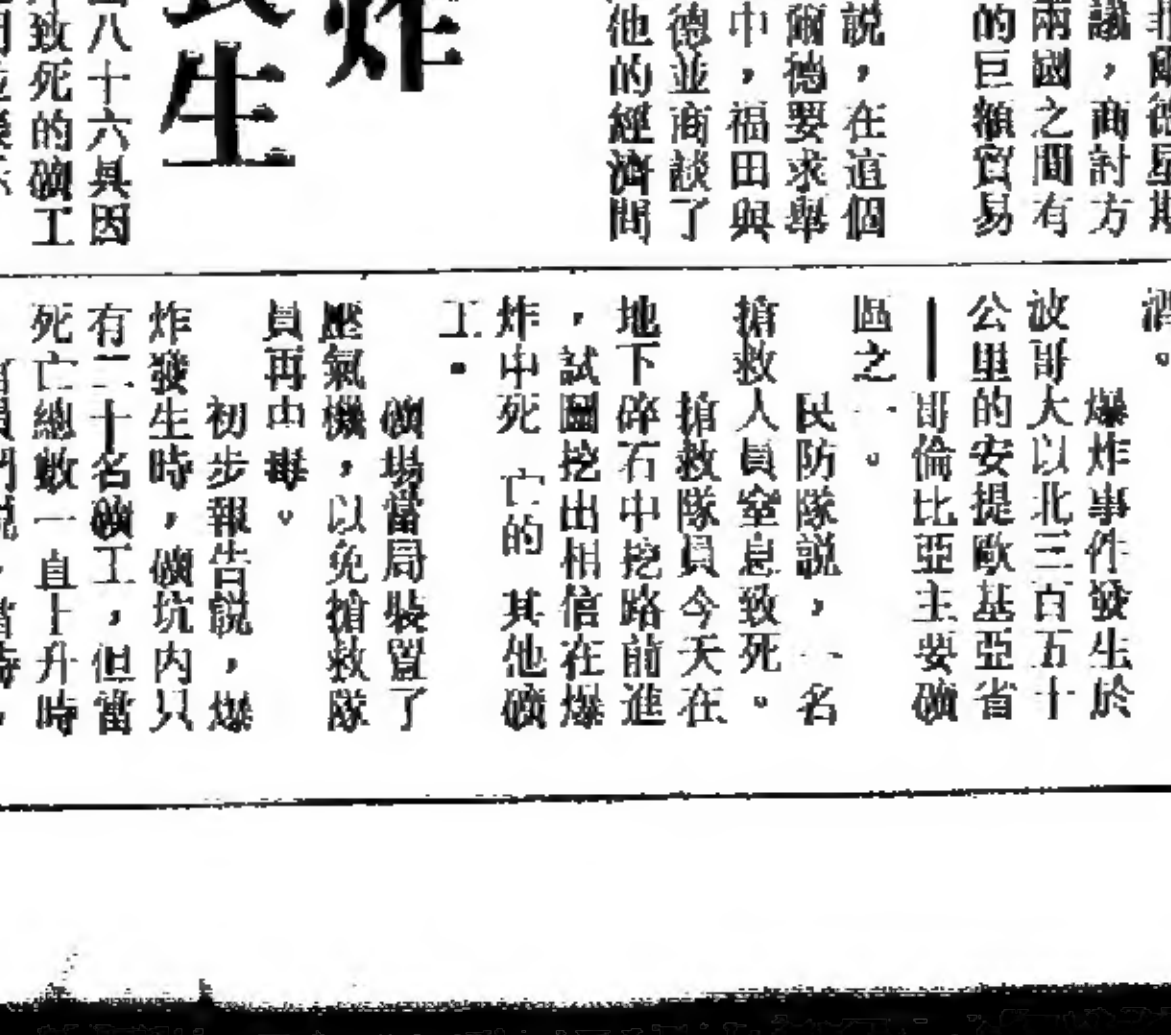 議，商討方
兩國之間有
的巨額貿易
說，在這個
爾德要求舉
中，福田與
德並商談了
他的經濟問
炸
生
八十六具因
致死的礦工
酒。
爆炸事件發生於
波哥大以北三百五十
公里的安提歐基亞省
—哥倫比亞主要礦
區之一。
民防隊說，一名
搶救人員窒息致死。
搶救隊員今天在
地下碎石中挖路前進
，試圖挖出相信在爆
炸中死亡的其他礦
工。
礦場當局裝置了
壓氣機，以免搶救隊
員再中毒。
初步報告說，爆
炸發生時，礦坑內只
有二十名礦工，但當
死亡總數一直上升時